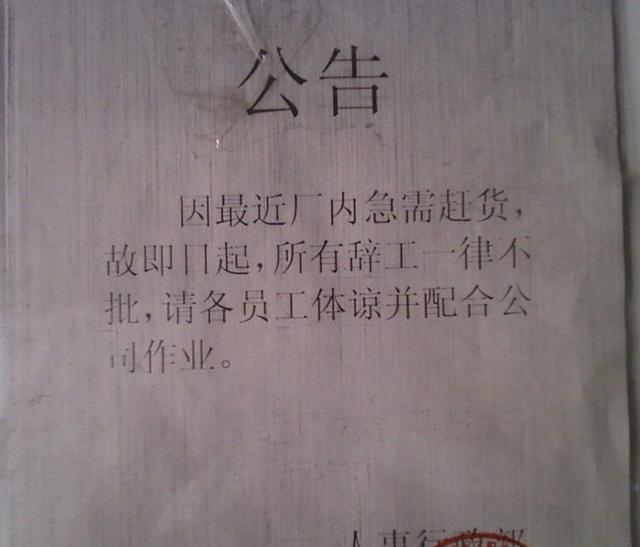 公告
因最近厂内急需赶货，
故即日起，所有辞工一律不
批，请各员工体谅并配合公
司作业。
人事行政部